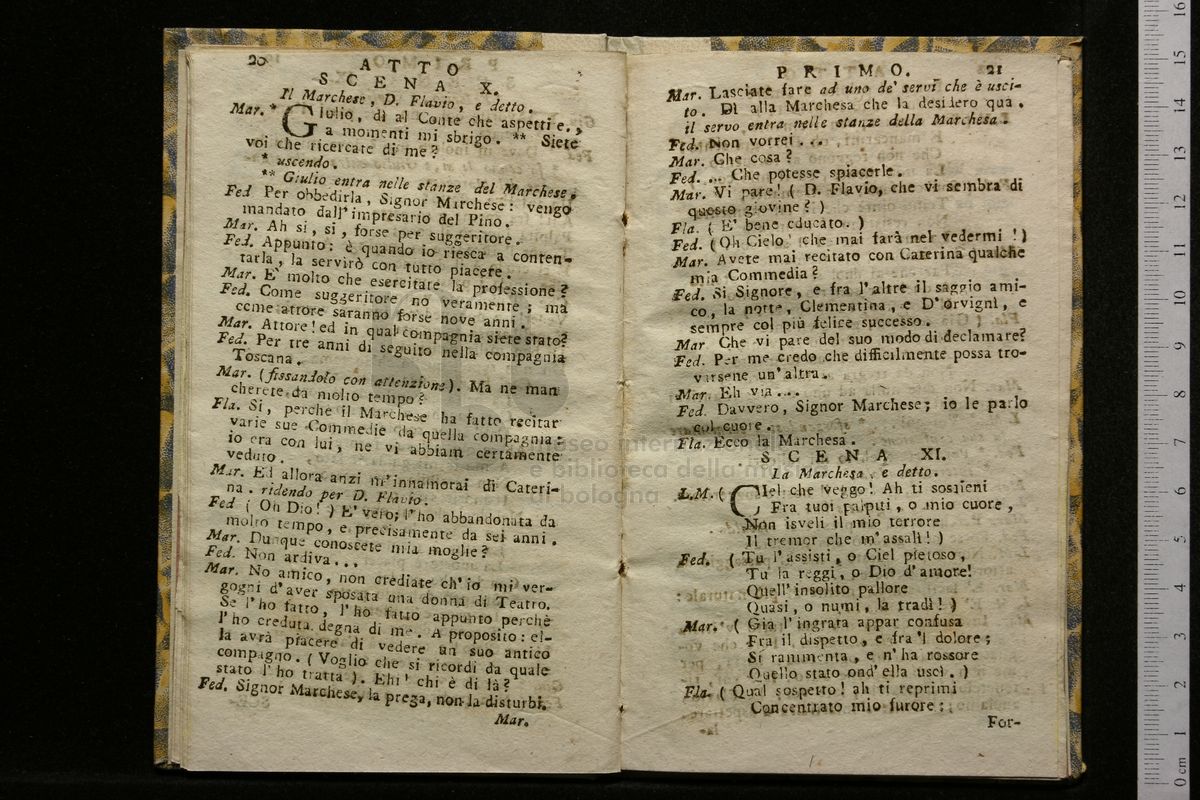 20
ATTO
SCENA X.
Il Marchese, D. Flavio, e detto.
Mar. * Giulio, dì al Conte che aspetti e.,
a momenti mi sbrigo. ** Siete
voi che ricercate di me?
* uscendo.
** Giulio entra nelle stanze del Marchese.
Fed Per obbedirla, Signor Marchese: vengo
mandato dall'impresario del Pino.
Mar. Ah si, si, forse per suggeritore.
Fed. Appunto: è quando io riesca a conten-
tarla, la servirò con tutto piacere.
Mar. E' molto che esercitate la professione?
Fed. Come suggeritore no veramente; ma
come attore saranno forse nove anni.
Mar. Attore! ed in qual compagnia siete stato?
Fed. Per tre anni di seguito nella compagnia
Toscana.
Mar. (fissandolo con attenzione). Ma ne man
cherete da molto tempo?
Fla. Si, perchè il Marchese ha fatto recitar
varie sue Commedie da quella compagnia:
io era con lui, ne vi abbiam certamente
veduto.
Mar. Ed allora anzi m'innamorai di Cateri-
na. ridendo per D. Flavio.
Fed ( Oh Dio! ) E' vero; l'ho abbandonata da
molto tempo, e precisamente da sei anni.
Mar. Dunque conoscete mia moglie?
Fed. Non ardiva...
Mar. No amico, non crediate ch'io mi ver-
gogni d'aver sposata una donna di Teatro.
Se l'ho fatto, l'ho fatto appunto perchè
l'ho creduta degna di me. A proposito: el-
la avrà piacere di vedere un suo antico
compagno. ( Voglio che si ricordi da quale
stato l'ho tratta ). Ehi! chi è di là?
Fed. Signor Marchese, la prega, non la disturbi.
Mar.
PRIMO. 21
Mar. Lasciate fare ad uno de' servi che è usci-
to. Dì alla Marchesa che la desidero qua.
il servo entra nelle stanze della Marchesa.
Fed. Non vorrei...
Mar. Che cosa?
Fed. ... Che potesse spiacerle.
Mar. Vi pare! ( D. Flavio, che vi sembra di
questo giovine? )
Fla. ( E' bene educato. )
Fed. (Oh Cielo! che mai farà nel vedermi!)
Mar. Avete mai recitato con Caterina qualche
mia Commedia?
Fed. Si Signore, e fra l'altre il saggio ami-
co, la notte, Clementina, e D'orvigni, e
sempre col più felice successo.
Mar Che vi pare del suo modo di declamare?
Fed. Per me credo che difficilmente possa tro-
varsene un'altra.
Mar. Eh via...
Fed. Davvero, Signor Marchese; io le parlo
col cuore.
Fla. Ecco la Marchesa.
SCENA XI.
La Marchesa, e detto.
L.M. ( Ciel che veggo! Ah ti sostieni
Fra tuoi palpiti, o mio cuore,
Non isveli il mio terrore
Il tremor che m'assalì! )
Fed. ( Tu l'assisti, o Ciel pietoso,
Tu la reggi, o Dio d'amore!
Quell'insolito pallore
Quasi, o numi, la tradì! )
Mar. ( Gia l'ingrata appar confusa
Fra il dispetto, e fra 'l dolore;
Si rammenta, e n'ha rossore
Quello stato ond'ella uscì. )
Fla. ( Qual sospetto! ah ti reprimi
Concentrato mio furore:
For-
museo internazionale
e biblioteca della musica
di bologna
0 cm 1 2 3 4 5 6 7 8 9 10 11 12 13 14 15 16